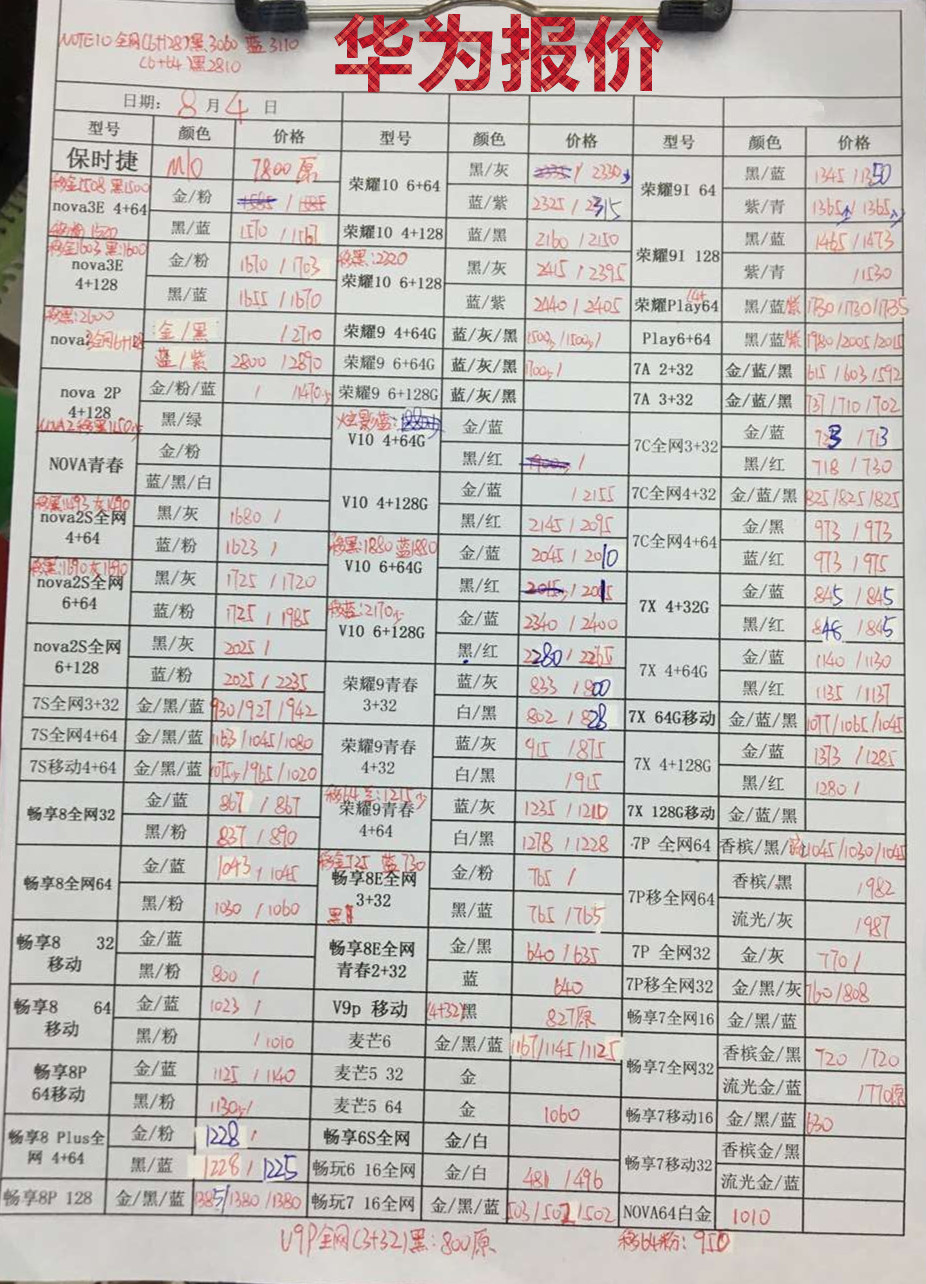 华为报价
NOTE10全网(6+128)黑:3060 蓝3110
(6+64)黑2810
日期: 8月4日
型号 颜色 价格 型号 颜色 价格 型号 颜色 价格
保时捷 M/O 7800原
荣耀10 6+64 黑/灰 / 2330
蓝/紫 2325 / 2315
荣耀9I 64 黑/蓝 1345 / 1350
紫/青 1365 / 1365
移金1508 黑1500
nova3E 4+64 金/粉
黑/蓝 1570 / 1567
荣耀10 4+128 蓝/黑 2160 / 2150
荣耀9I 128 黑/蓝 1465 / 1473
紫/青 / 1530
移金1603 黑:1600
nova3E 4+128 金/粉 1670 / 1703
黑/蓝 1655 / 1670
移黑:2320
荣耀10 6+128 黑/灰 2415 / 2395
蓝/紫 2440 / 2405
荣耀Play64 黑/蓝紫 1730 / 1730 / 1735
移黑:2600
nova3全网6+128 金/黑 / 2710
蓝/紫 2800 / 2890
荣耀9 4+64G 蓝/灰/黑 1500 / 1500 /
Play6+64 黑/蓝紫 1980 / 2005 / 2015
荣耀9 6+64G 蓝/灰/黑 1700 /
7A 2+32 金/蓝/黑 615 / 603 / 592
nova 2P 4+128 金/粉/蓝 / 1470
黑/绿
荣耀9 6+128G 蓝/灰/黑
7A 3+32 金/蓝/黑 737 / 710 / 702
NOVA2移黑1150
炫影蓝:
V10 4+64G 金/蓝
黑/红
7C全网3+32 金/蓝 723 / 713
黑/红 718 / 730
NOVA青春 金/粉
蓝/黑/白
V10 4+128G 金/蓝 / 2155
黑/红 2145 / 2095
7C全网4+32 金/蓝/黑 825 / 825 / 825
移黑:1493 灰1490
nova2S全网 4+64 黑/灰 1680 /
蓝/粉 1623 /
7C全网4+64 金/黑 973 / 973
蓝/红 973 / 975
移黑:1880 蓝1880
V10 6+64G 金/蓝 2045 / 2010
黑/红 / 2015
移黑:1690 灰1690
nova2S全网 6+64 黑/灰 1725 / 1720
蓝/粉 1725 / 1985
7X 4+32G 金/蓝 845 / 845
黑/红 846 / 845
移蓝:2170
V10 6+128G 金/蓝 2340 / 2400
黑/红 2280 / 2265
nova2S全网 6+128 黑/灰 2025 /
蓝/粉 2025 / 2235
7X 4+64G 金/蓝 1140 / 1130
黑/红 1135 / 1137
荣耀9青春 3+32 蓝/灰 833 / 800
白/黑 802 / 828
7S全网3+32 金/黑/蓝 930 / 927 / 942
7X 64G移动 金/蓝/黑 1077 / 1065 / 1045
7S全网4+64 金/黑/蓝 1163 / 1045 / 1080
荣耀9青春 4+32 蓝/灰 915 / 875
白/黑 / 915
7X 4+128G 金/蓝 1373 / 1285
黑/红 1280 /
7S移动4+64 金/黑/蓝 1075 / 965 / 1020
畅享8全网32 金/蓝 867 / 867
黑/粉 837 / 890
荣耀9青春 4+64 蓝/灰 1235 / 1210
白/黑 1278 / 1228
7X 128G移动 金/蓝/黑
7P 全网64 香槟/黑/蓝 1045 / 1030 / 1045
畅享8全网64 金/蓝 1043 / 1045
黑/粉 1030 / 1060
移金725 蓝730
畅享8E全网 3+32 金/粉 765 /
黑/蓝 765 / 765
7P移全网64 香槟/黑 / 982
流光/灰 / 987
畅享8 32 移动 金/蓝
黑/粉 800 /
畅享8E全网 青春2+32 金/黑 640 / 635
蓝 640
7P 全网32 金/灰 770 /
7P移全网32 金/黑/灰 760 / 808
畅享8 64 移动 金/蓝 1023 /
黑/粉 / 1010
V9p 移动 (4+32)黑 827原
畅享7全网16 金/黑/蓝
麦芒6 金/黑/蓝 1167 / 1145 / 1125
畅享7全网32 香槟金/黑 720 / 720
流光金/蓝 / 770原
畅享8P 64移动 金/蓝 1125 / 1140
黑/粉 1130 /
麦芒5 32 金
麦芒5 64 金 1060
畅享7移动16 金/黑/蓝 630
畅享8 Plus全网 4+64 金/粉 1228 /
黑/蓝 1228 / 1225
畅享6S全网 金/白
畅享7移动32 香槟金/黑
流光金/蓝
畅玩6 16全网 金/白 481 / 496
畅享8P 128 金/黑/蓝 1385 / 1380 / 1380
畅玩7 16全网 金/黑/蓝 503 / 502 / 502
NOVA64白金 1010
V9P全网(3+32)黑:800原
移64粉:950